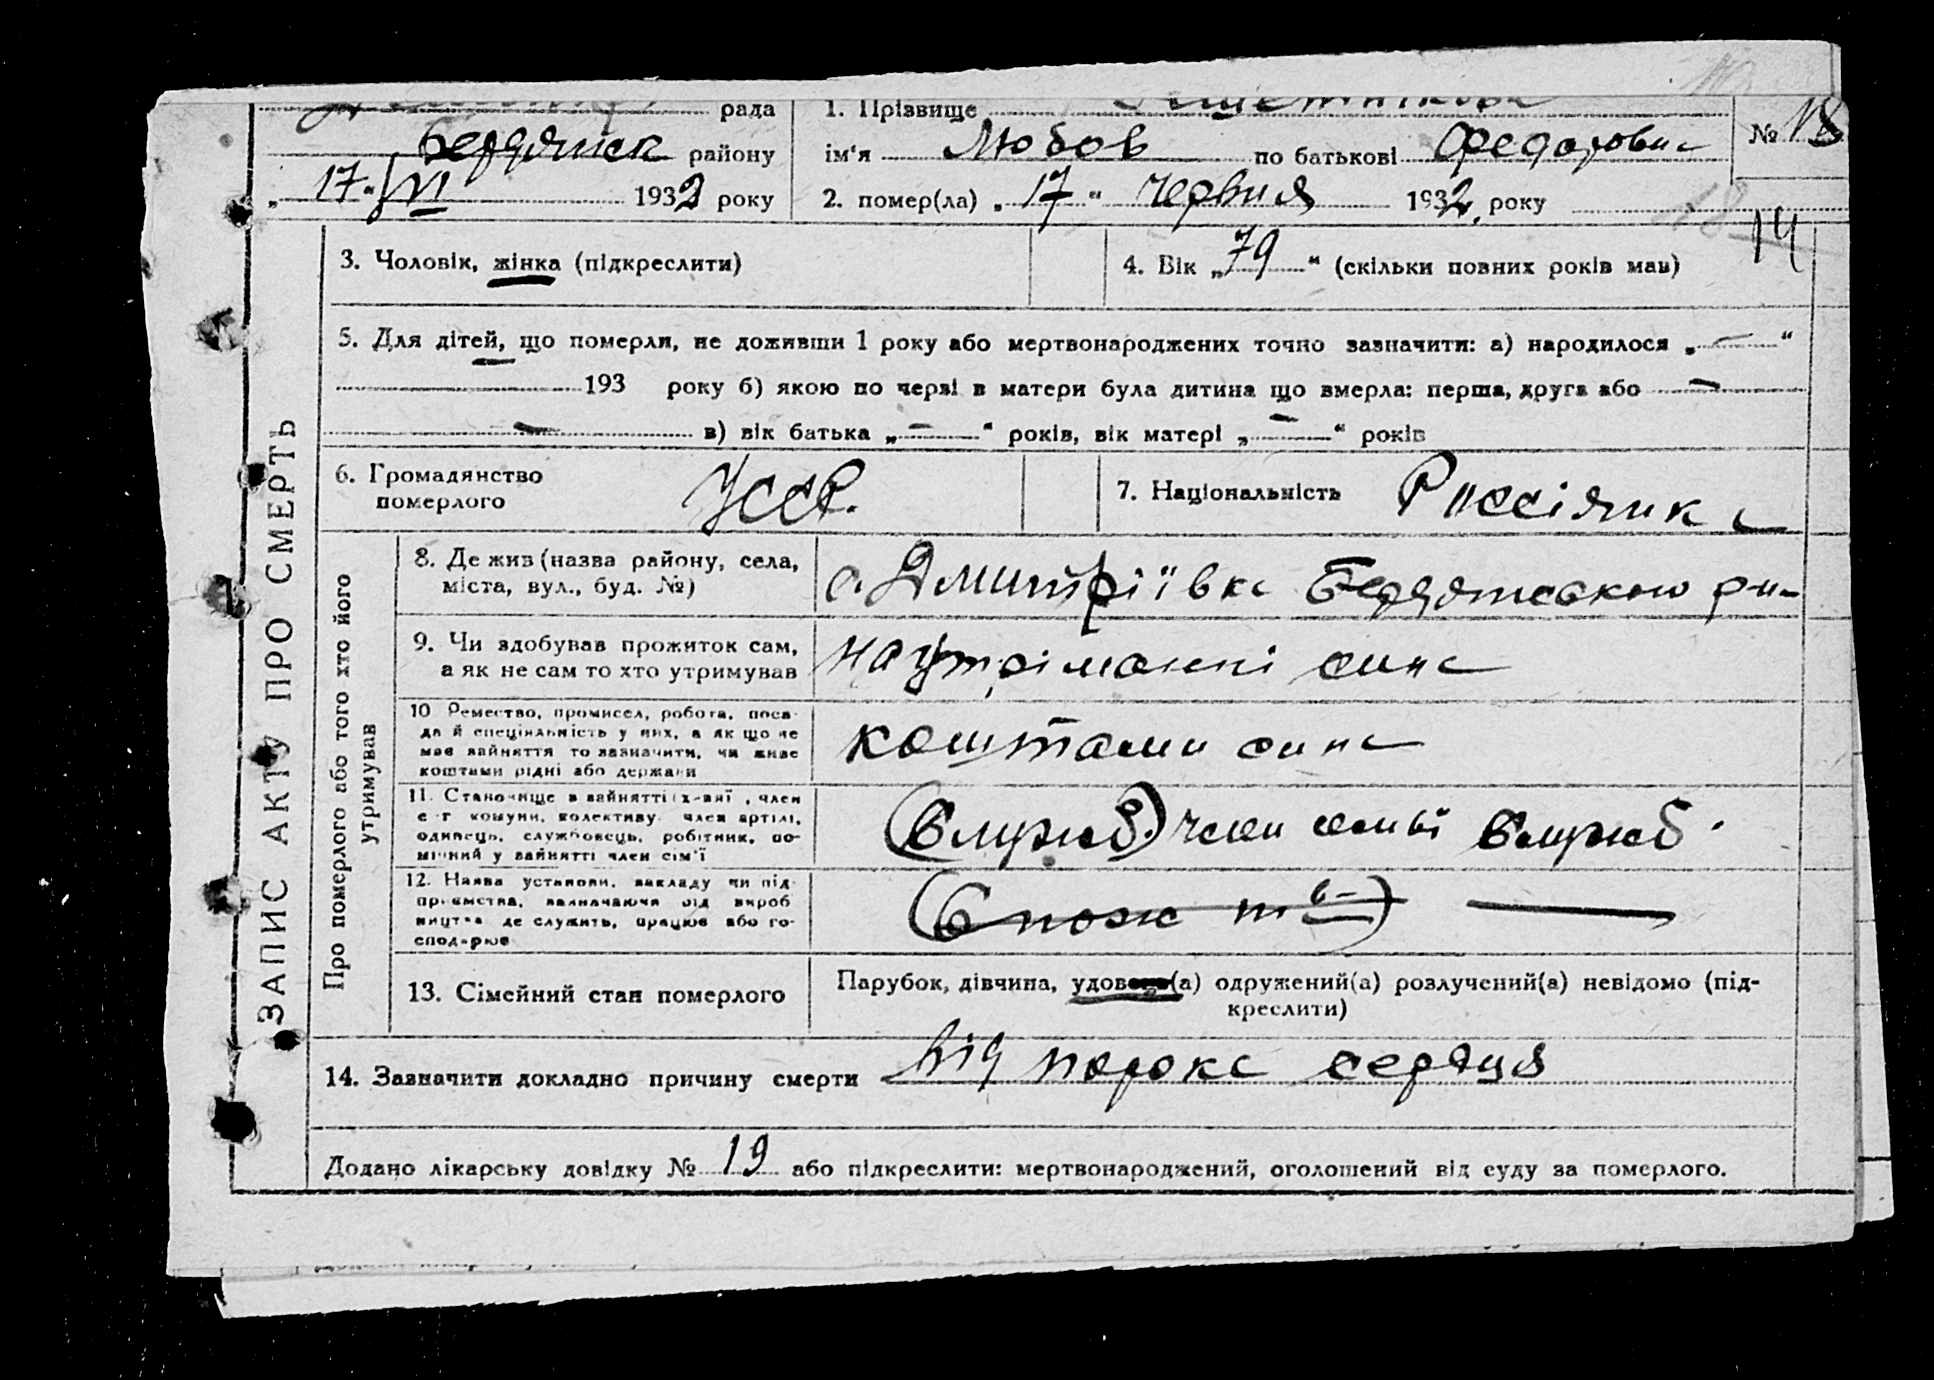 рада 1. Прізвище
Бердянск району ім'я Любов по батькові Федоровна № 18
„17“ VI 1932 року 2. помер(ла) „17“ червня 1932 року
14
3. Чоловік, жінка (підкреслити) 4. Вік „79“ (скільки повних років мав)
5. Для дітей, що померли, не доживши 1 року або мертвонароджених точно зазначити: а) народилося „—“
193 року б) якою по черзі в матери була дитина що вмерла: перша, друга або —
— в) вік батька „—“ років, вік матері „—“ років
6. Громадянство УССР. 7. Національність Россіянка
померлого
ЗАПИС АКТУ ПРО СМЕРТЬ
Про померлого або того хто його
утримував
8. Де жив (назва району, села, с. Дмитріївка Бердянського ра-
міста, вул., буд. №)
9. Чи здобував прожиток сам, на утріманні сина
а як не сам то хто утримував
10 Ремество, промисел, робота, поса-
да й спеціяльність у них, а як що не коштами сина
має зайняття то зазначити, чи живе
коштами рідні або держави
11. Становище в зайнятті , член
с-г комуни, колективу член артілі, (Служб.) член семьї Служб.
одинець, службовець, робітник, по-
мічний у зайнятті член сім'ї
12. Назва установи, закладу чи під-
приємства, зазначаючи рід вироб (Спож т-в) —
ництва де служить, працює або го-
сподарює
13. Сімейний стан померлого Парубок, дівчина, удовець(а) одружений(а) розлучений(а) невідомо (під-
креслити)
14. Зазначити докладно причину смерти від порока сердця
Додано лікарську довідку № 19 або підкреслити: мертвонароджений, оголошений від суду за померлого.